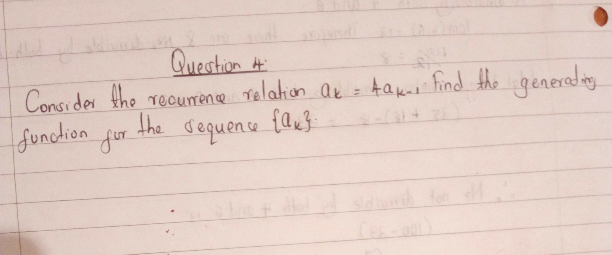 Question 4:
Consider the recurrence relation aₖ = 4aₖ₋₁. Find the generating
function for the sequence {aₖ}.